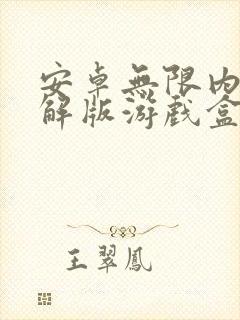 安卓無限內
解版游戲盒
王翠鳳